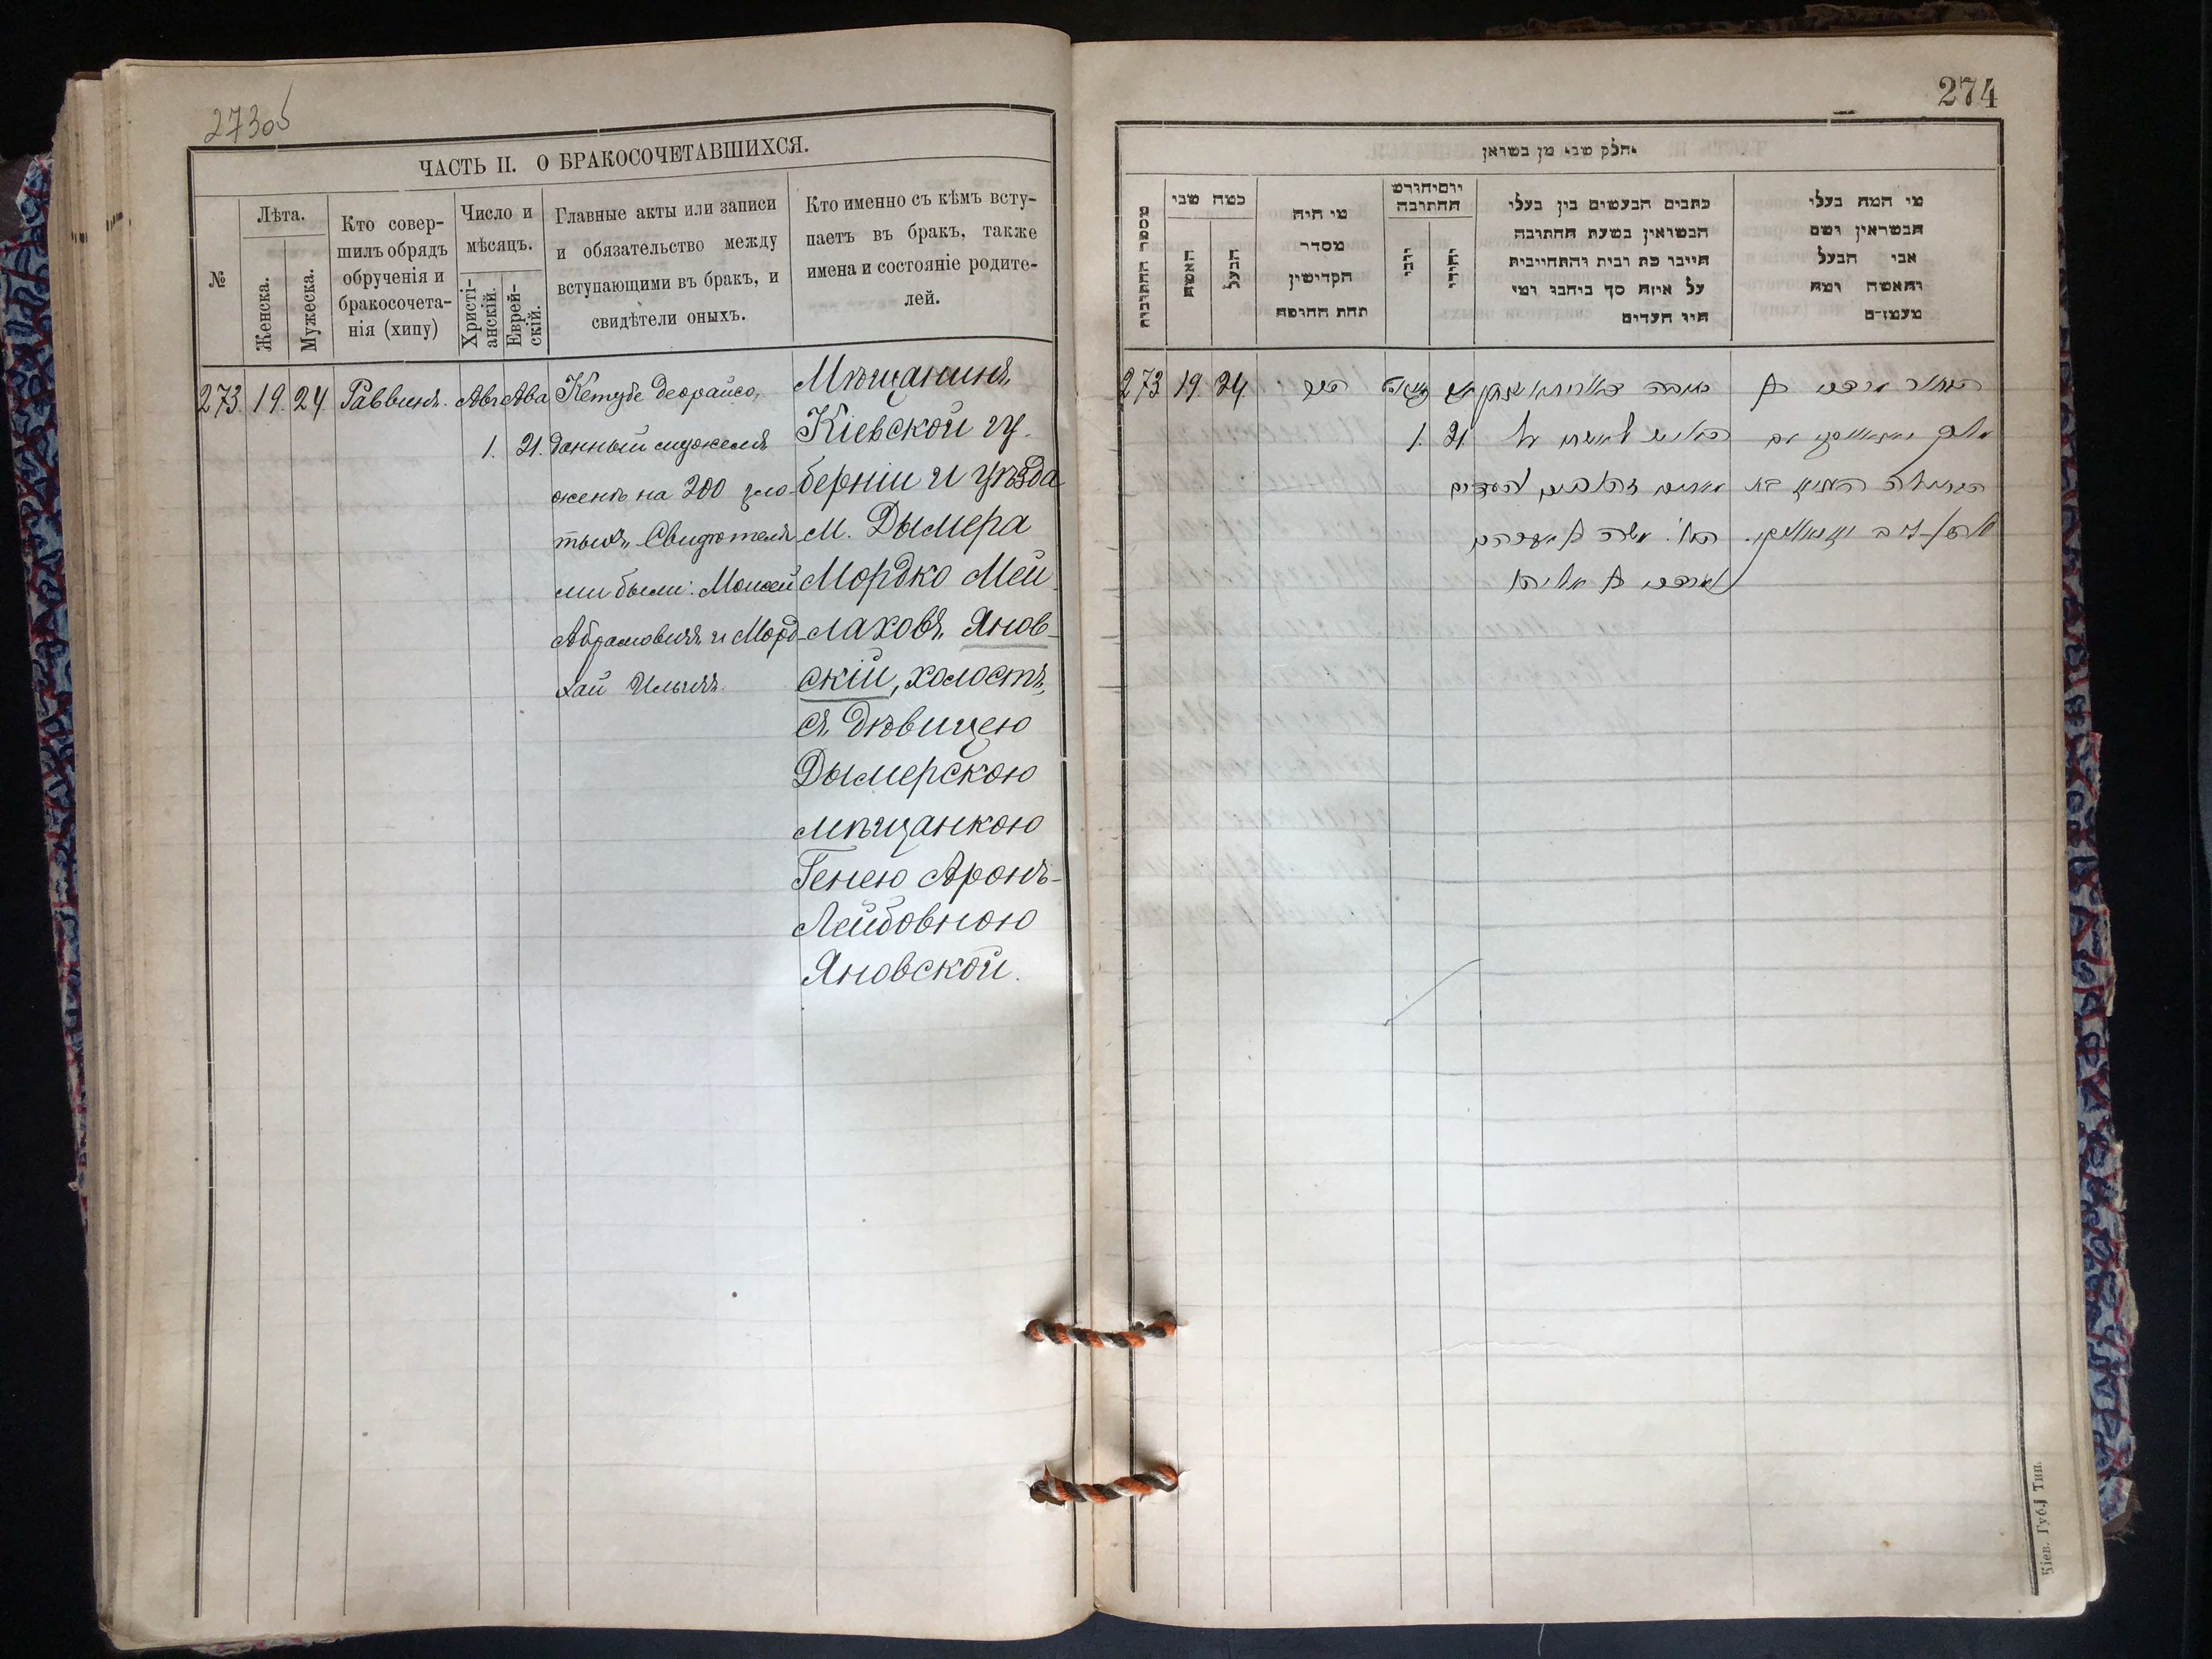 273об
ЧАСТЬ II. О БРАКОСОЧЕТАВШИХСЯ.
№
Лѣта.
Женска.
Мужеска.
Кто совер-
шилъ обрядъ
обрученія и
бракосочета-
нія (хипу)
Число и
мѣсяцъ.
Христі-
анскій.
Еврей-
скій.
Главные акты или записи
и обязательство между
вступающими въ бракъ, и
свидѣтели оныхъ.
Кто именно съ кѣмъ всту-
паетъ въ бракъ, также
имена и состояніе родите-
лей.
273. 19. 24 Раввинъ. Авг Ава
1. 21.
Кетубе деорайсо,
данный мужемъ
женѣ на 200 зло-
тыхъ. Свидѣтеля-
ми были: Моисей
Абрамовичъ и Морд-
хай Ильичъ.
Мѣщанинъ
Кіевской гу-
берніи и уѣзда
м. Дымера
Мордко Мей-
лаховъ Янов-
скій, холостъ,
съ дѣвицею
Дымерскою
мѣщанкою
Генею Аронъ-
Лейбовною
Яновской.
274
חלק שני מן נשואין
מספר החתונות
כמה שני
האשה
הבעל
מי היה
מסדר
הקדישין
תחת החופה
יום יחודש
החתונה
נוצרי
יהודי
כתבים הנעשים בין בעלי
הנשואין בשעת החתונה
היינו כת ובית והתחייבות
על איזה סך ביחבו ומי
היו העדים
מי המה בעלי
הנשואין ושם
אבי הבעל
והאשה ומה
מעמדם
273 19. 24.
הרב
1. 21
הבחור מרדכי בן
הבתולה
משה בן אברהם
ומרדכי בן אליהו
Кіев. Губ. Тип.